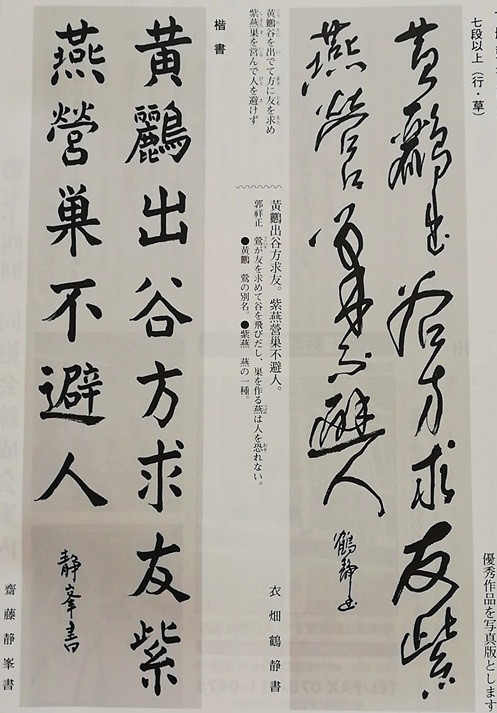 七段以上（行・草）
黄鸝出谷方求友紫
燕營巣不避人
鶴静書
衣畑鶴静書
黄鸝出谷方求友。紫燕營巣不避人。
郭祥正　鶯が友を求めて谷を飛びだし、巣を作る燕は人を恐れない。
●黄鸝　鶯の別名。●紫燕　燕の一種。
黄鸝谷を出でて方に友を求め
紫燕巣を営んで人を避けず
楷書
黄鸝出谷方求友紫
燕營巣不避人
静峯書
齋藤静峯書
優秀作品を写真版とします